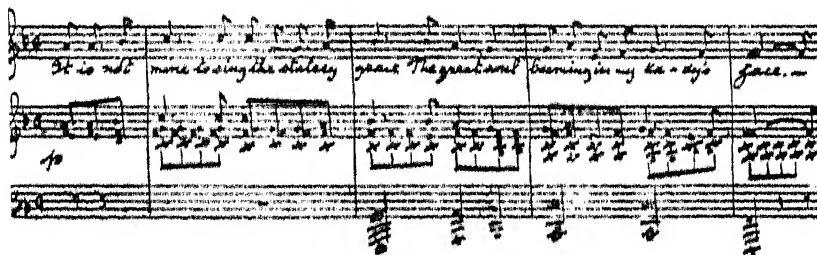 It is not mine to sing the stately grace, The great soul beaming in my la - dy's face. —
p